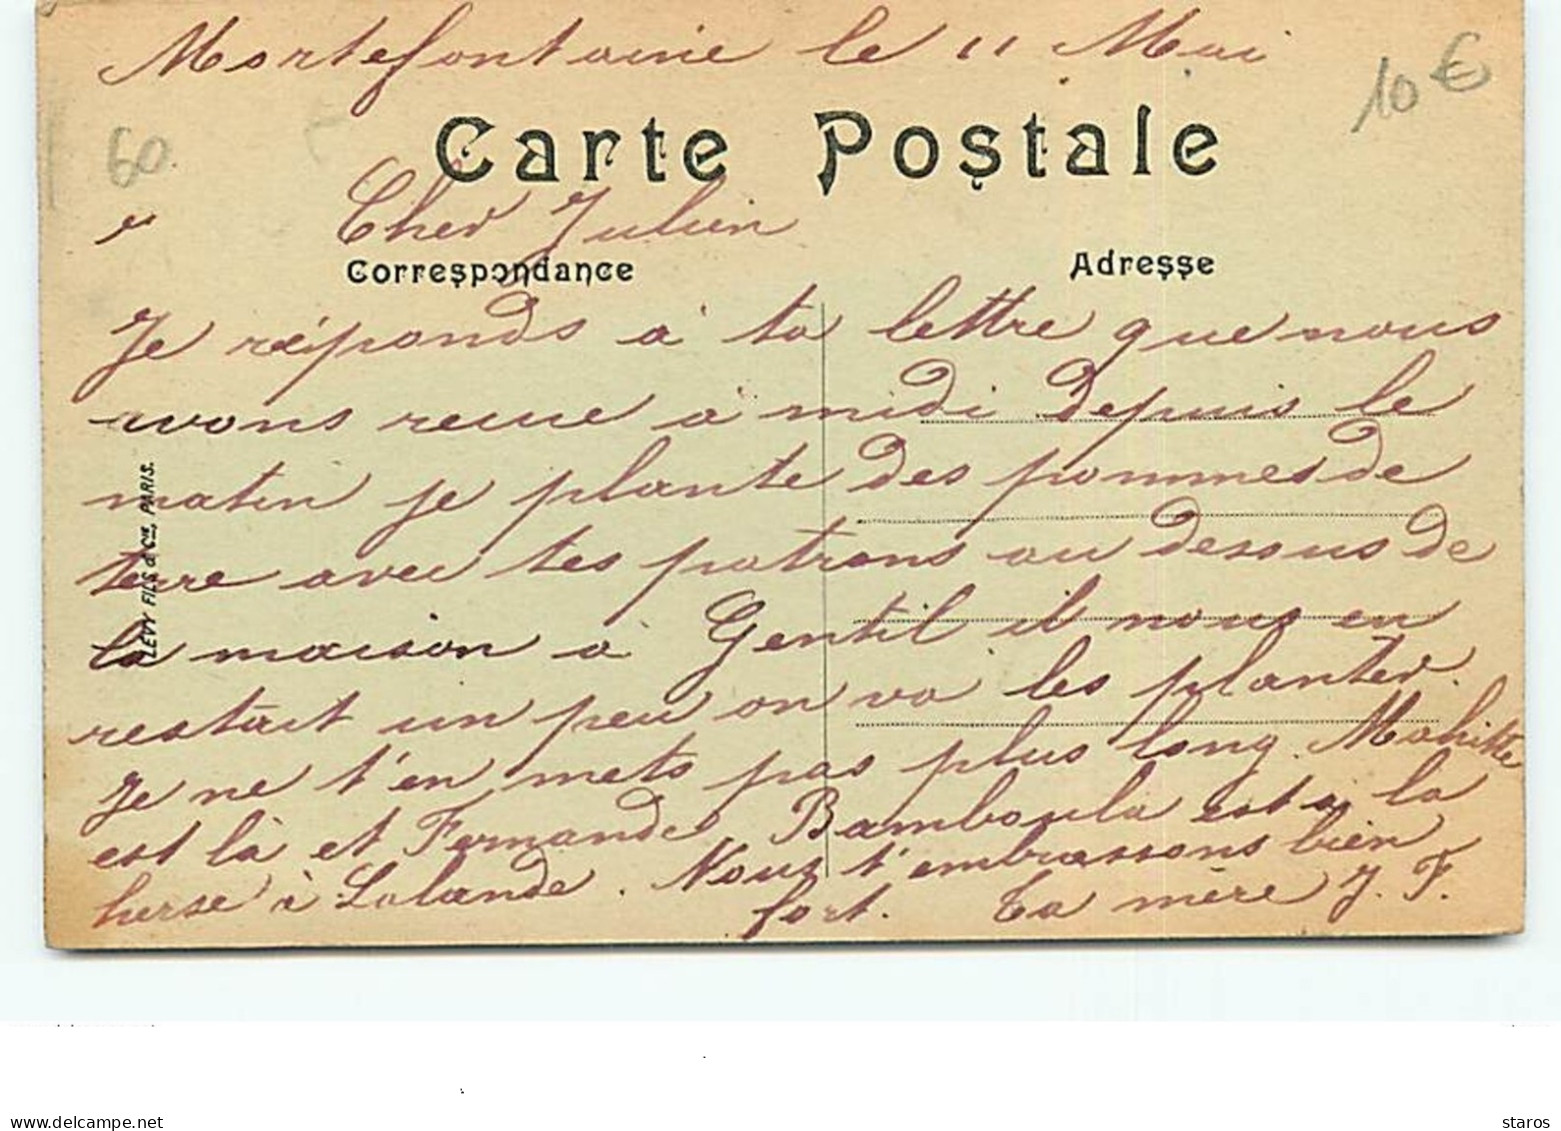 Mortefontaine le 11 Mai
10 €
60
Carte Postale
Cher Julien
Correspondance
Adresse
Je réponds à ta lettre que nous
avons recue à midi Depuis le
matin je plante des pommes de
terre avec tes patrons au dessus de
la maison à Gentil il nous en
restait un peu on va les planter.
Je ne t'en mets pas plus long. Mahitte
est là et Fernande, Bamboula est à la
herse à Lalande. Nous t'embrassons bien
fort. Ta mère J. F.
LEVY FILS & Cie, PARIS.
www.delcampe.net
staros